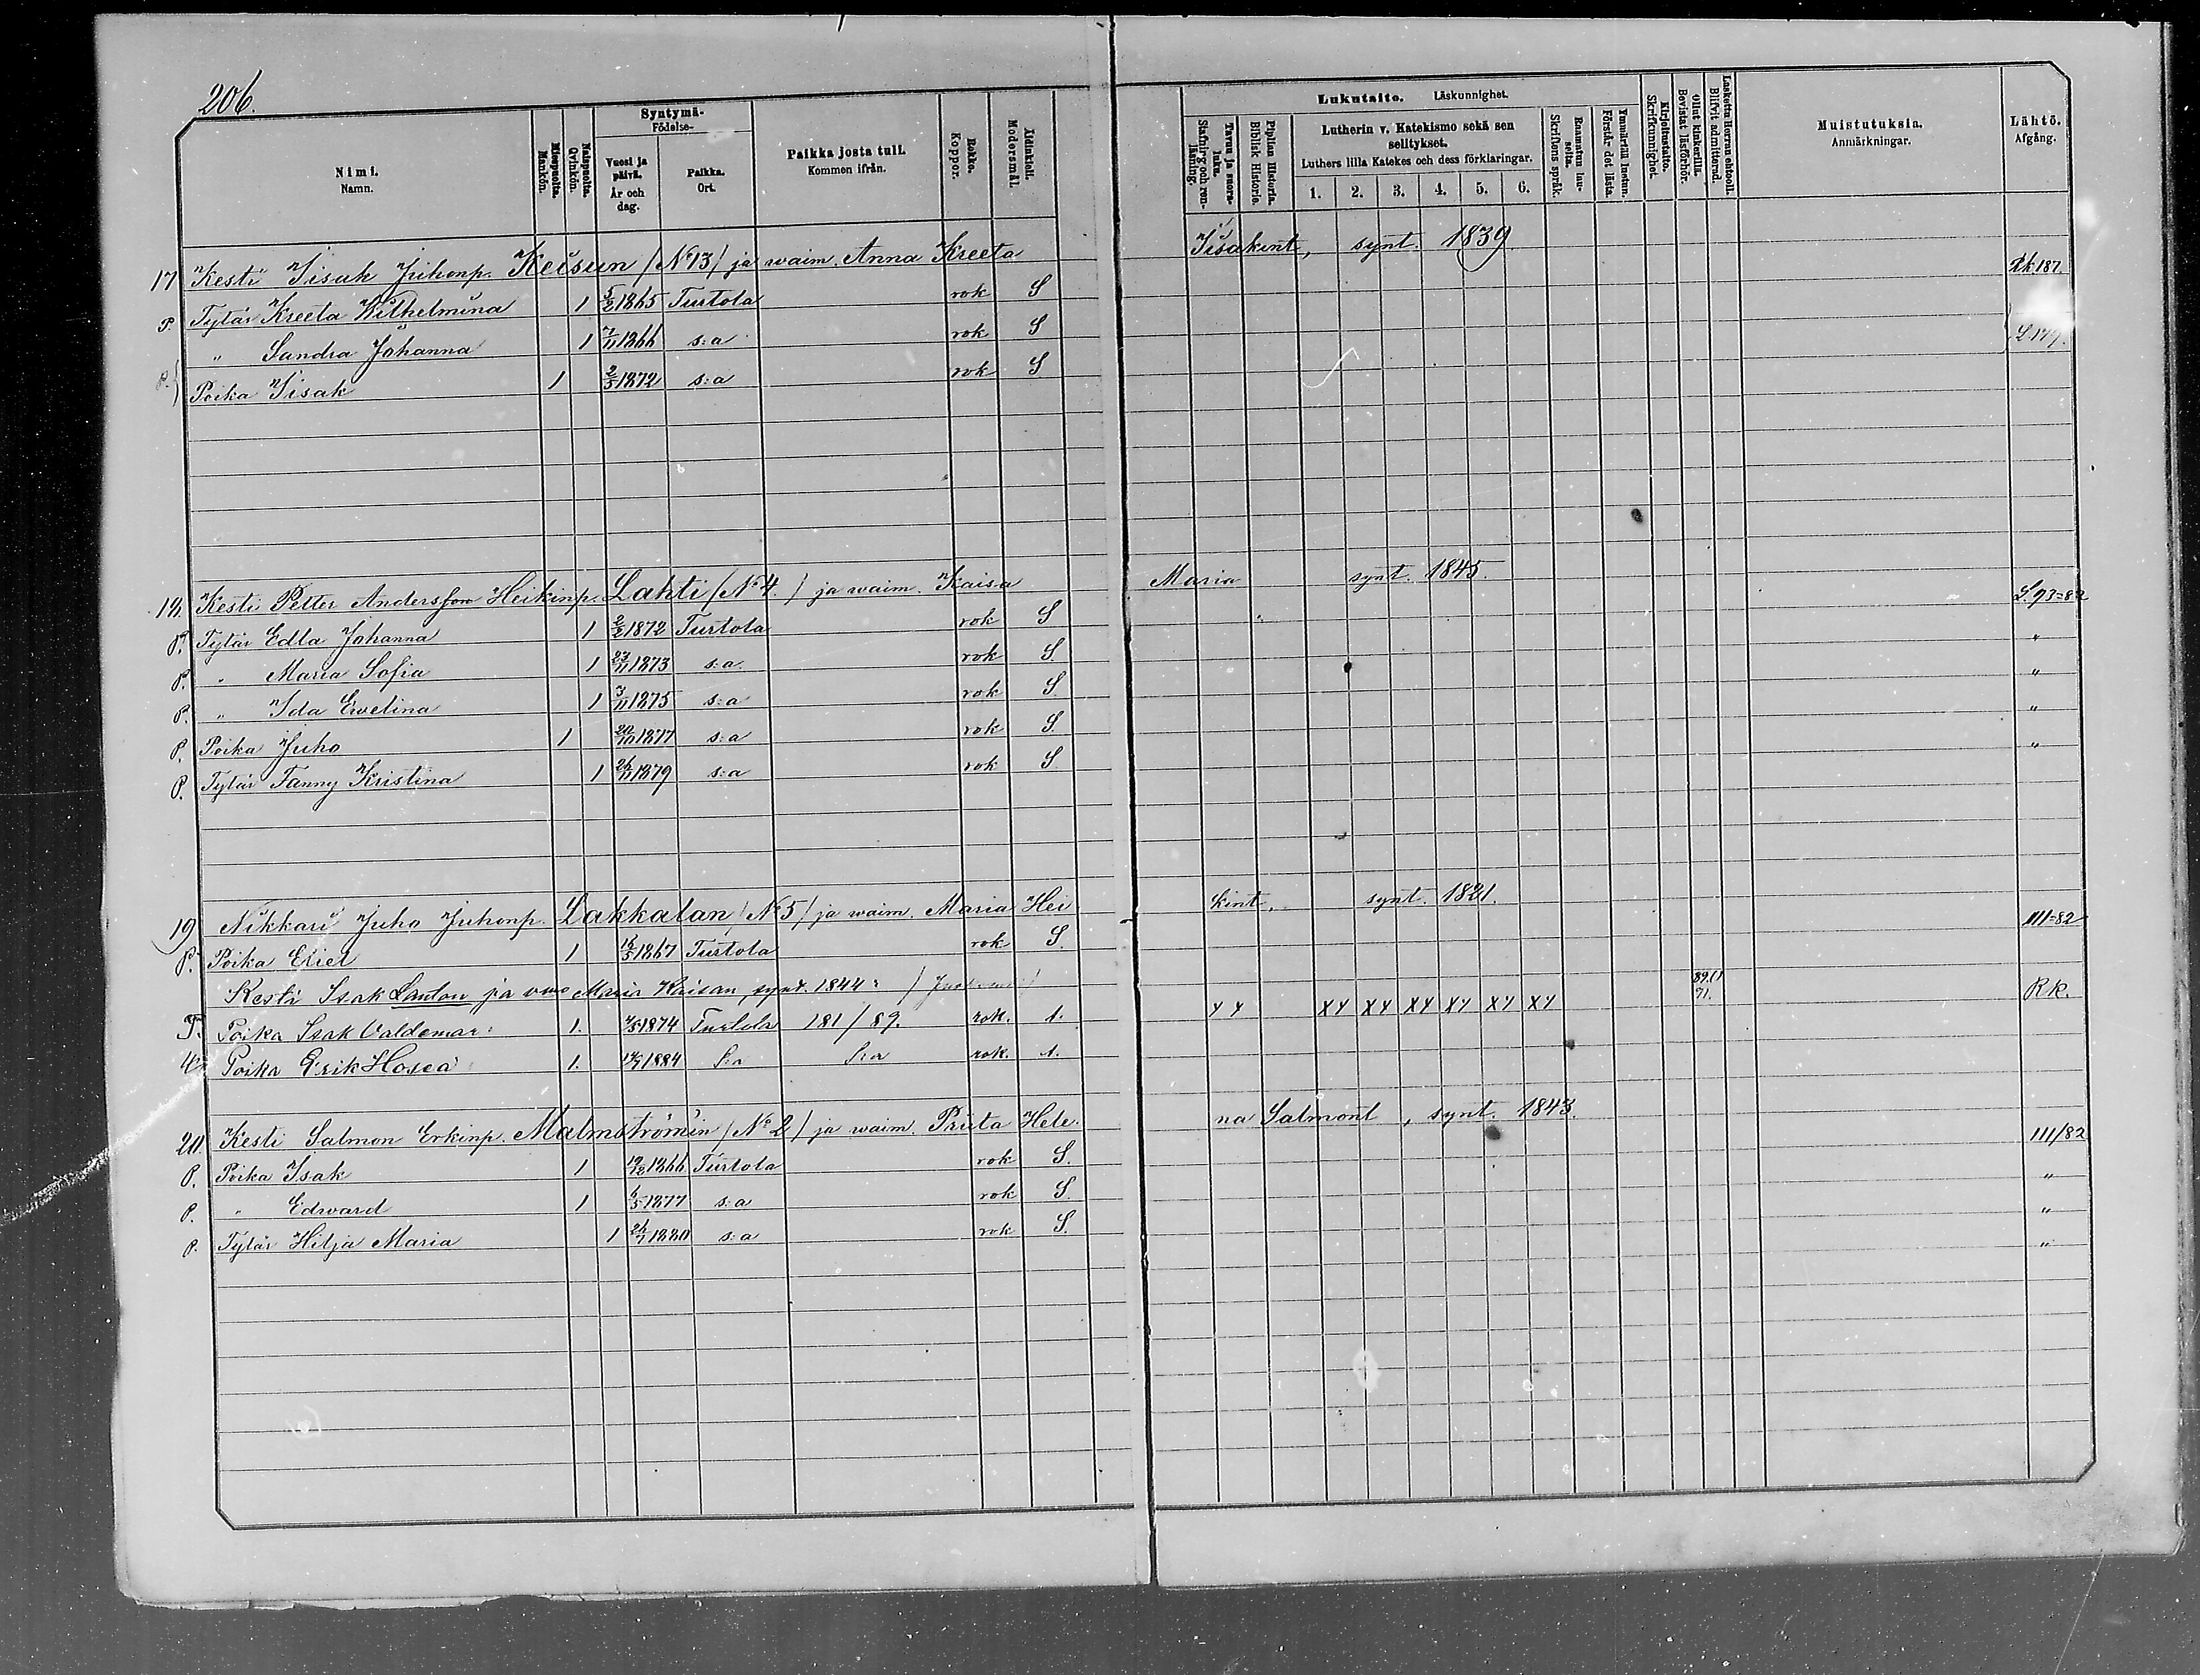 206.
Nimi. Namn.
Miespuolia. Mankön.
Naispuolia. Qvinkön.
Syntymä- Födelse-
Vuosi ja päivä. År och dag.
Paikka. Ort.
Paikka josta tuli. Kommen ifrån.
Rokko. Koppor.
Äidinkieli. Modersmål.
Lukutaito. Läskunnighet.
Tavuu ja suora- luku. Stafning och ren- läsning.
Piplian Historia. Biblisk Historie.
Lutherin v. Katekismo sekä sen selitykset.
Luthers lilla Katekes och dess förklaringar.
1. 2. 3. 4. 5. 6.
Raamatun lau- seita. Skriftens språk.
Ymmärtää luetun. Förstår det lästa.
Kirjoitustaito. Skrifkunnighet.
Ollut kinkerillä. Bevistat läsförhör.
Laskettu Herran ehtool. Blifvit admitterad.
Muistutuksia. Anmärkningar.
Lähtö. Afgång.
17 Kesti Iisak Juhonp. Keisun (No 13) ja waim. Anna Kreeta Iisakint, synt. 1839. Rk 187.
P. Tytär Kreeta Wilhelmina 1 5/2 1865 Turtola rok S
" Sandra Johanna 1 7/11 1866 s:a rok S L 179.
P. Poika Iisak 1 2/5 1872 s:a rok S
18. Kesti Petter Andersson Heikinp. Lahti (No 4.) ja waim. Kaisa Maria synt. 1845. L. 93=82
P. Tytär Edla Johanna 1 2/2 1872 Turtola rok S "
P. " Maria Sofia 1 23/11 1873 s:a rok S. "
P. " Ida Ewelina 1 3/11 1875 s:a rok S. "
P. Poika Juho 1 20/10 1877 s:a rok S. "
P. Tytär Fanny Kristina 1 26/11 1879 s:a rok S.
19 Nikkari Juho Juhonp. Lakkalan (No 5) ja waim. Maria Hei kint. synt. 1821. 111=82
P. Poika Eriel 1 18/5 1867 Turtola rok S.
Kesti Isak Lantou ja vmo Maria Kaisan, synt. 1844:
T. Poika Isak Valdemar: 1. 7/5 1874 Turtola 181/89. rok. 1. XX XX XX XX XX XX XX 89.(1 91. Rk.
Poika Erik Hosea 1. 1884 s:a s:a rok. 1.
20. Kesti Salmon Erkinp. Malmströmin (No 2) ja waim. Priita Hele- na Salmont, synt. 1843. 111/82
P. Poika Isak 1 19/12 1866 Turtola rok S. "
P. " Edward 1 6/5 1877 s:a rok S. "
P. Tytär Hilja Maria 1 26/7 1880 s:a rok S. "